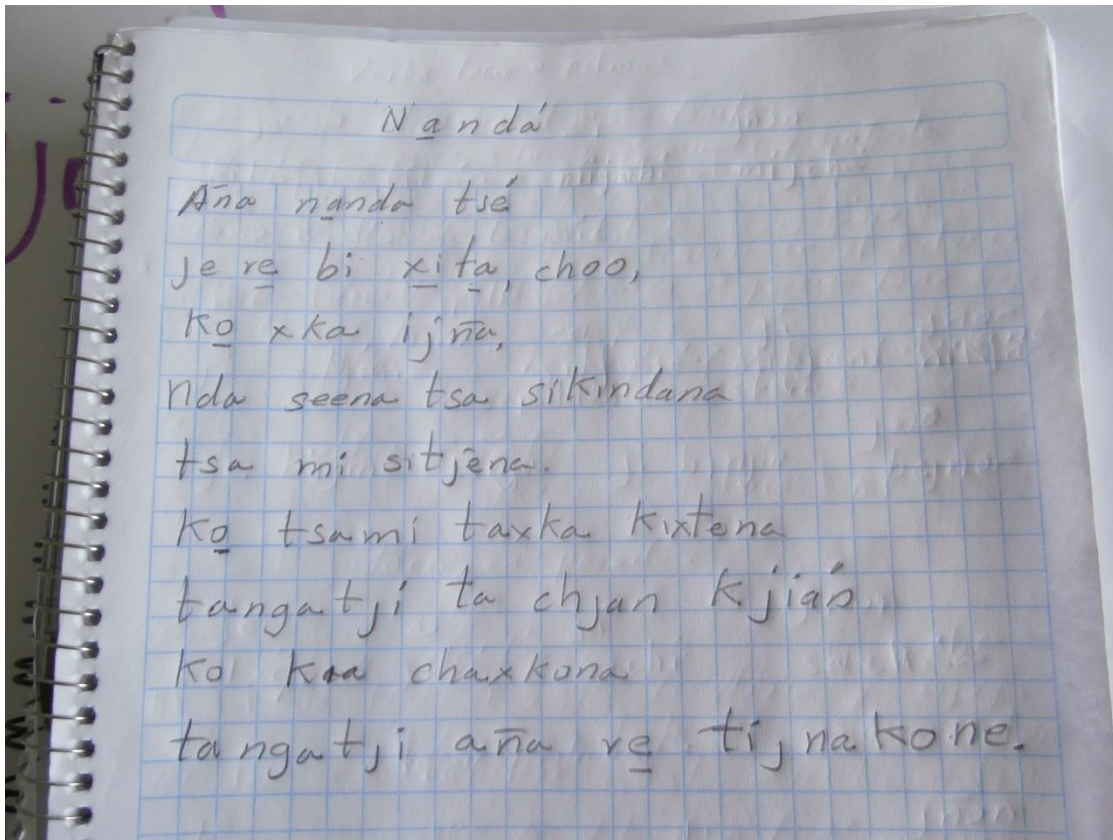 Na̱ndá
Aña na̱nda tsé
je re̱ bi xi̱ ta̱, choo,
Ko̱ xka ijña,
nda seena tsa sikindana
tsa mi sitjena.
Ko̱ tsami taxka kixtena
tangatji ta chjan kjián
Ko kaa chaxkona
tangatji aña re̱ tij na kone.